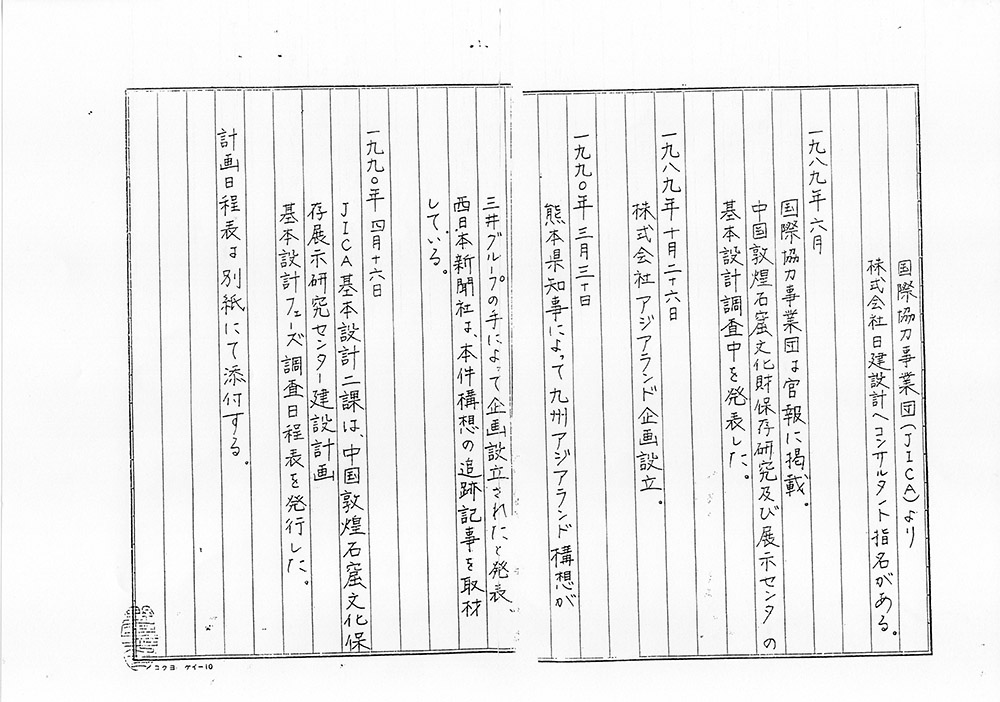 国際協力事業団(JICA)より
株式会社日建設計へコンサルタント指名がある。
一九八九年 六月
国際協力事業団は官報に掲載。
中国敦煌石窟文化財保存研究及び展示センタの
基本設計調査中を発表した。
一九八九年 十月二十六日
株式会社アジアランド企画設立。
一九九〇年 三月三十日
熊本県知事によって九州アジアランド構想が
三井グループの手によって企画設立されたと発表、
西日本新聞社は、本件構想の追跡記事を取材
している。
一九九〇年 四月十六日
JICA基本設計二課は、中国敦煌石窟文化保
存展示研究センター建設計画
基本設計フェーズ調査日程表を発行した。
計画日程表は別紙にて添付する。
コクヨ ケイー10